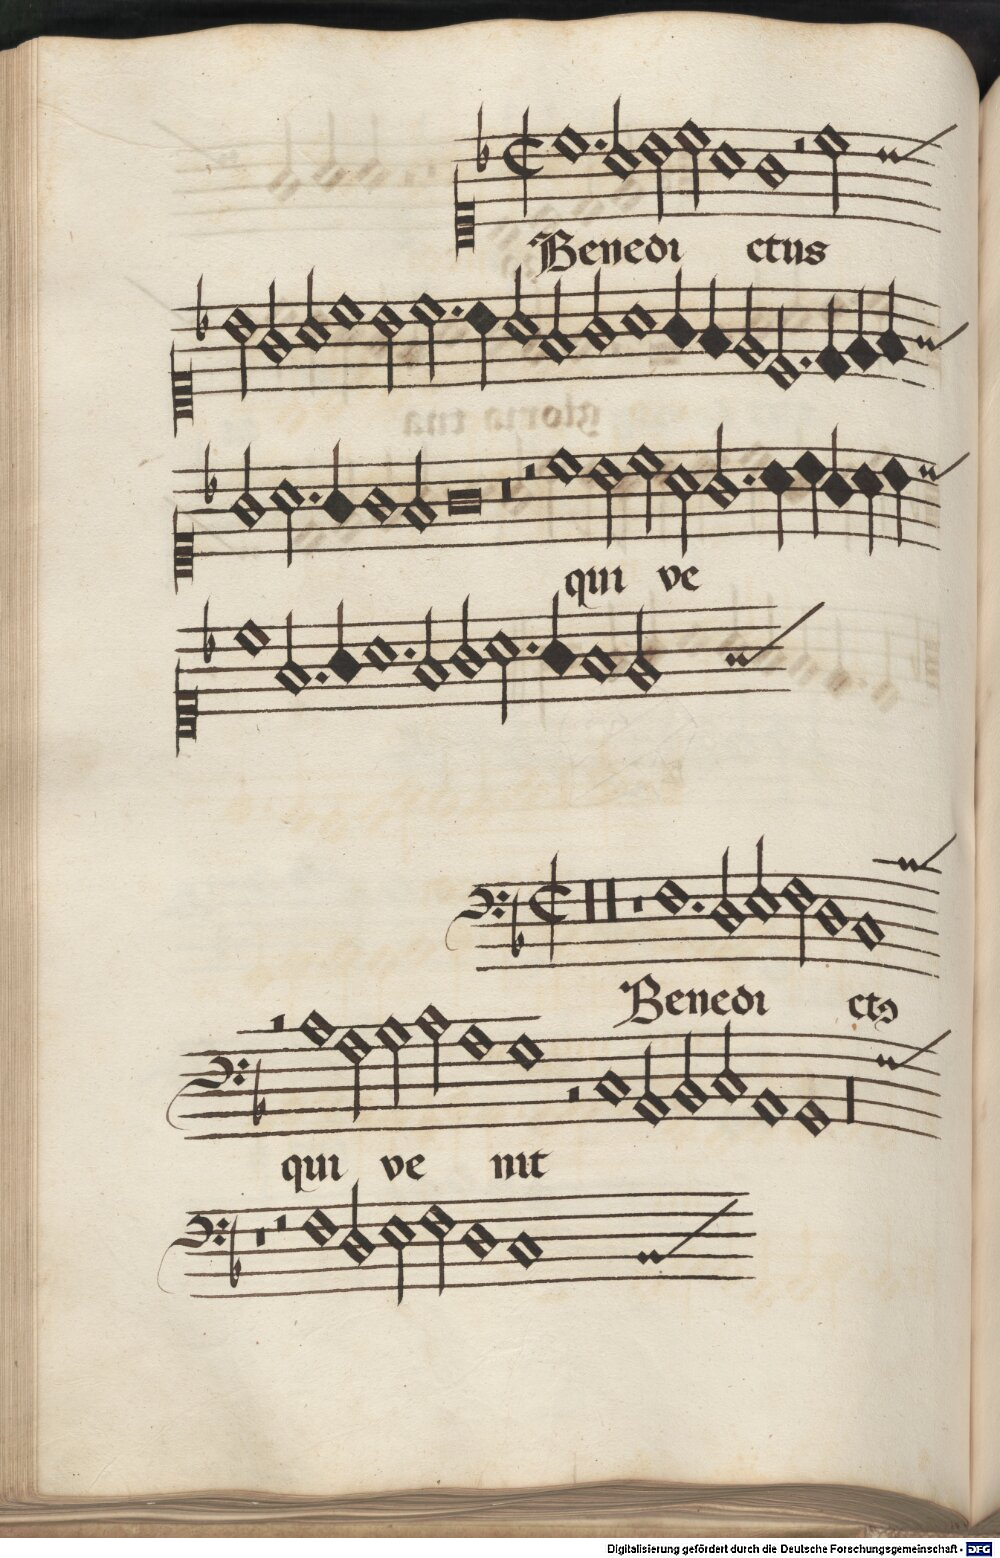 Benedi ctus
qui ve
Benedi ctꝯ
qui ve nit
Digitalisierung gefördert durch die Deutsche Forschungsgemeinschaft - DFG